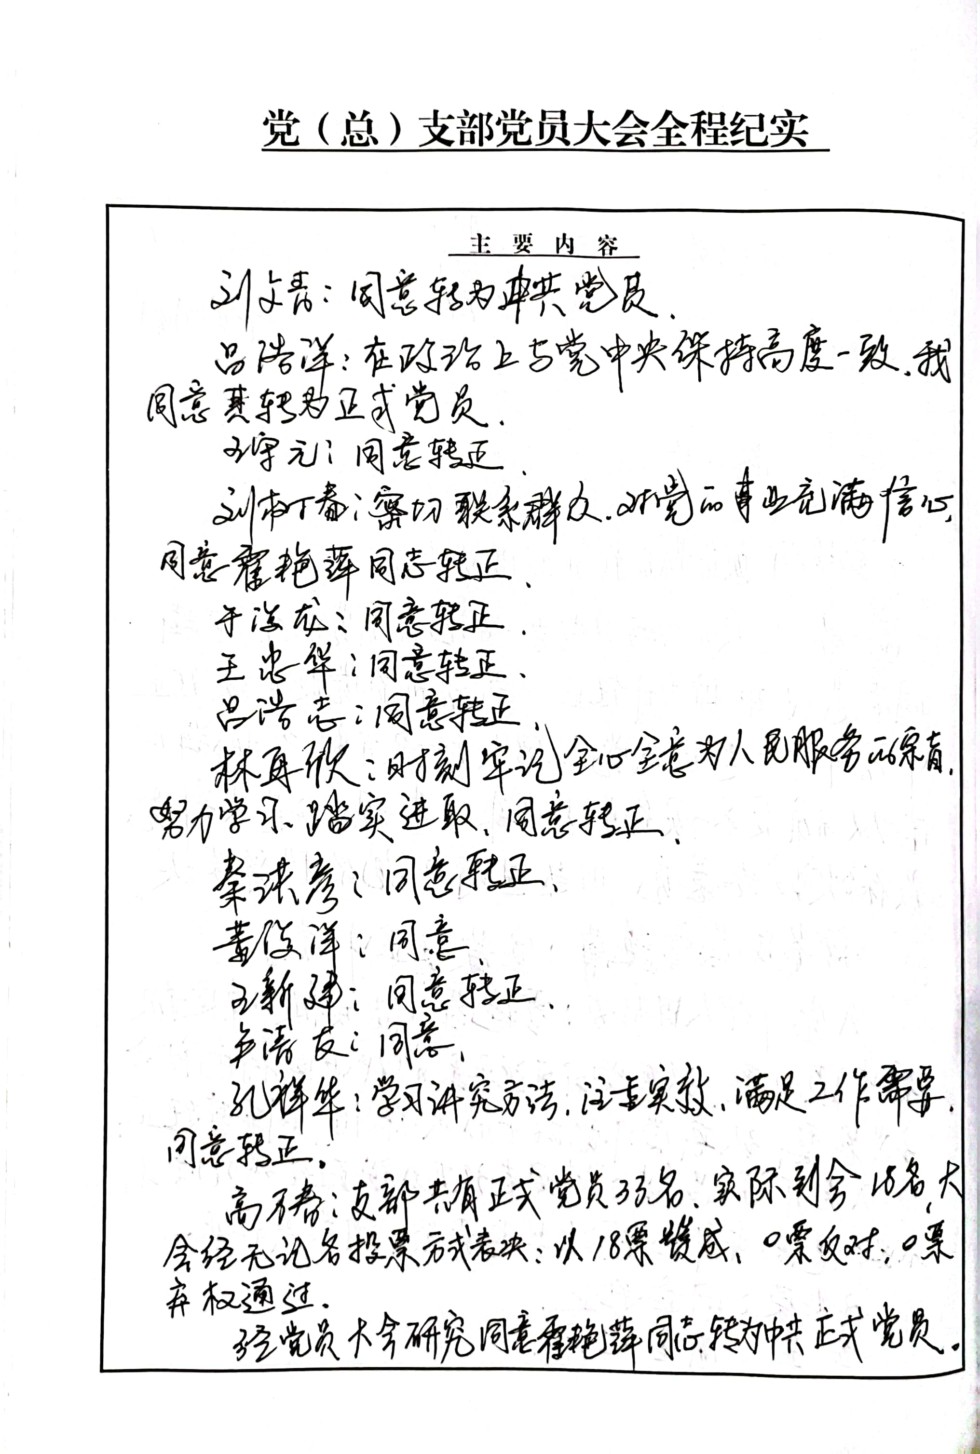 党（总）支部党员大会全程纪实
主要内容
刘文青：同意转为中共党员.
吕浩洋：在政治上与党中央保持高度一致.我
同意其转为正式党员.
王守元：同意转正.
刘树春：密切联系群众.对党的事业充满信心,
同意霍艳萍同志转正.
于洪龙：同意转正.
王忠华：同意转正.
吕浩志：同意转正.
林再欣：时刻牢记全心全意为人民服务的宗旨.
努力学习、踏实进取、同意转正.
秦洪彦：同意转正.
黄俊洋：同意.
王新建：同意转正.
清友：同意.
孔祥华：学习讲究方法.注重实效.满足工作需要.
同意转正.
高万春：支部共有正式党员33名.实际到会18名,大
会经无记名投票方式表决：以18票赞成、0票反对、0票
弃权通过.
经党员大会研究同意霍艳萍同志转为中共正式党员.